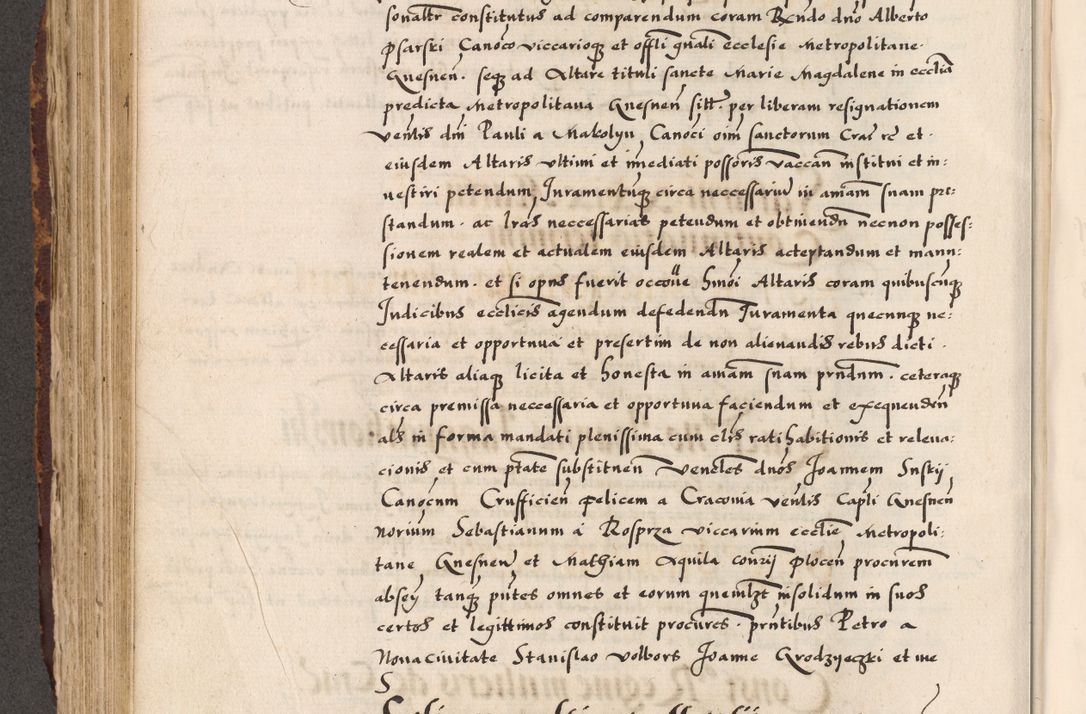 sonaltr constitutus ad comparendum coram Rndo dno Alberto
Psarski Canoco viccarioqz et offli gnali ecclesie Metropolitane
Gnesnen. seqz ad Altare tituli sancte Marie Magdalene in ecclia
predicta Metropolitana Gnesnen sitt. per liberam resignationem
venlis dni Pauli a Makolyn Canoci oim sanctorum Crac rc et
eiusdem Altaris ultimi et imediati possoris vaccan institui et in:
vestiri petendum, Iuramentuqz circa neccessariu in aniam suam pre:
standum. ac lras neccessarias petendum et obtinendn necnon posses:
sionem realem et actualem eiusdem Altaris acceptandum et mann:
tenendum. et si opus fuerit occone hmoi Altaris coram quibuscuqz
Iudicibus ecclicis agendum defedendn Iuramenta quecunqz ne:
cessaria et opportuna et presertim de non alienandis rebus dicti
Altaris aliaqz licita et honesta in aniam suam prndnm. ceteraqz
circa premissa neccessaria et opportuna faciendum et exequendn
als in forma mandati plenissima cum clis ratihabitionis et releva:
cionis et cum ptate substituen Veneles dnos Joannem Suskij
Canocum Crusficien Felicem a Cracovia venlis Capli Gnesnen
norium Sebastianum a Rosprza viccarium ecclie Metropoli:
tane Gnesnen et Mathiam Aquila conrij Plocen procurem
absey tanqz pntes omnes et eorum quemlzt insolidum in suos
certos et legittimos constituit procures. prntibus Petro a
Nova civitate Stanislao volbors Joanne Grodzyeczki et me
S